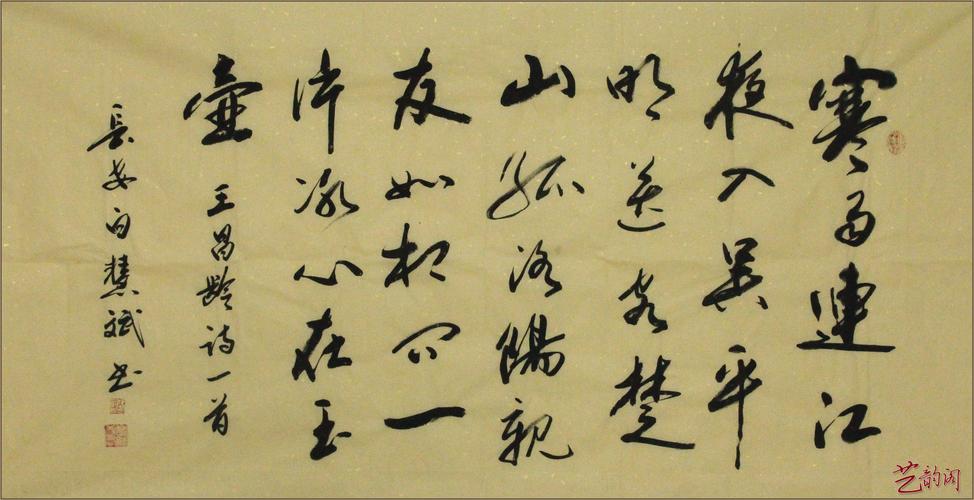 寒雨連江
夜入吳平
明送客楚
山孤洛陽親
友如相问一
片冰心在玉
壶
王昌龄诗一首
長安白慧斌书
艺韵阁